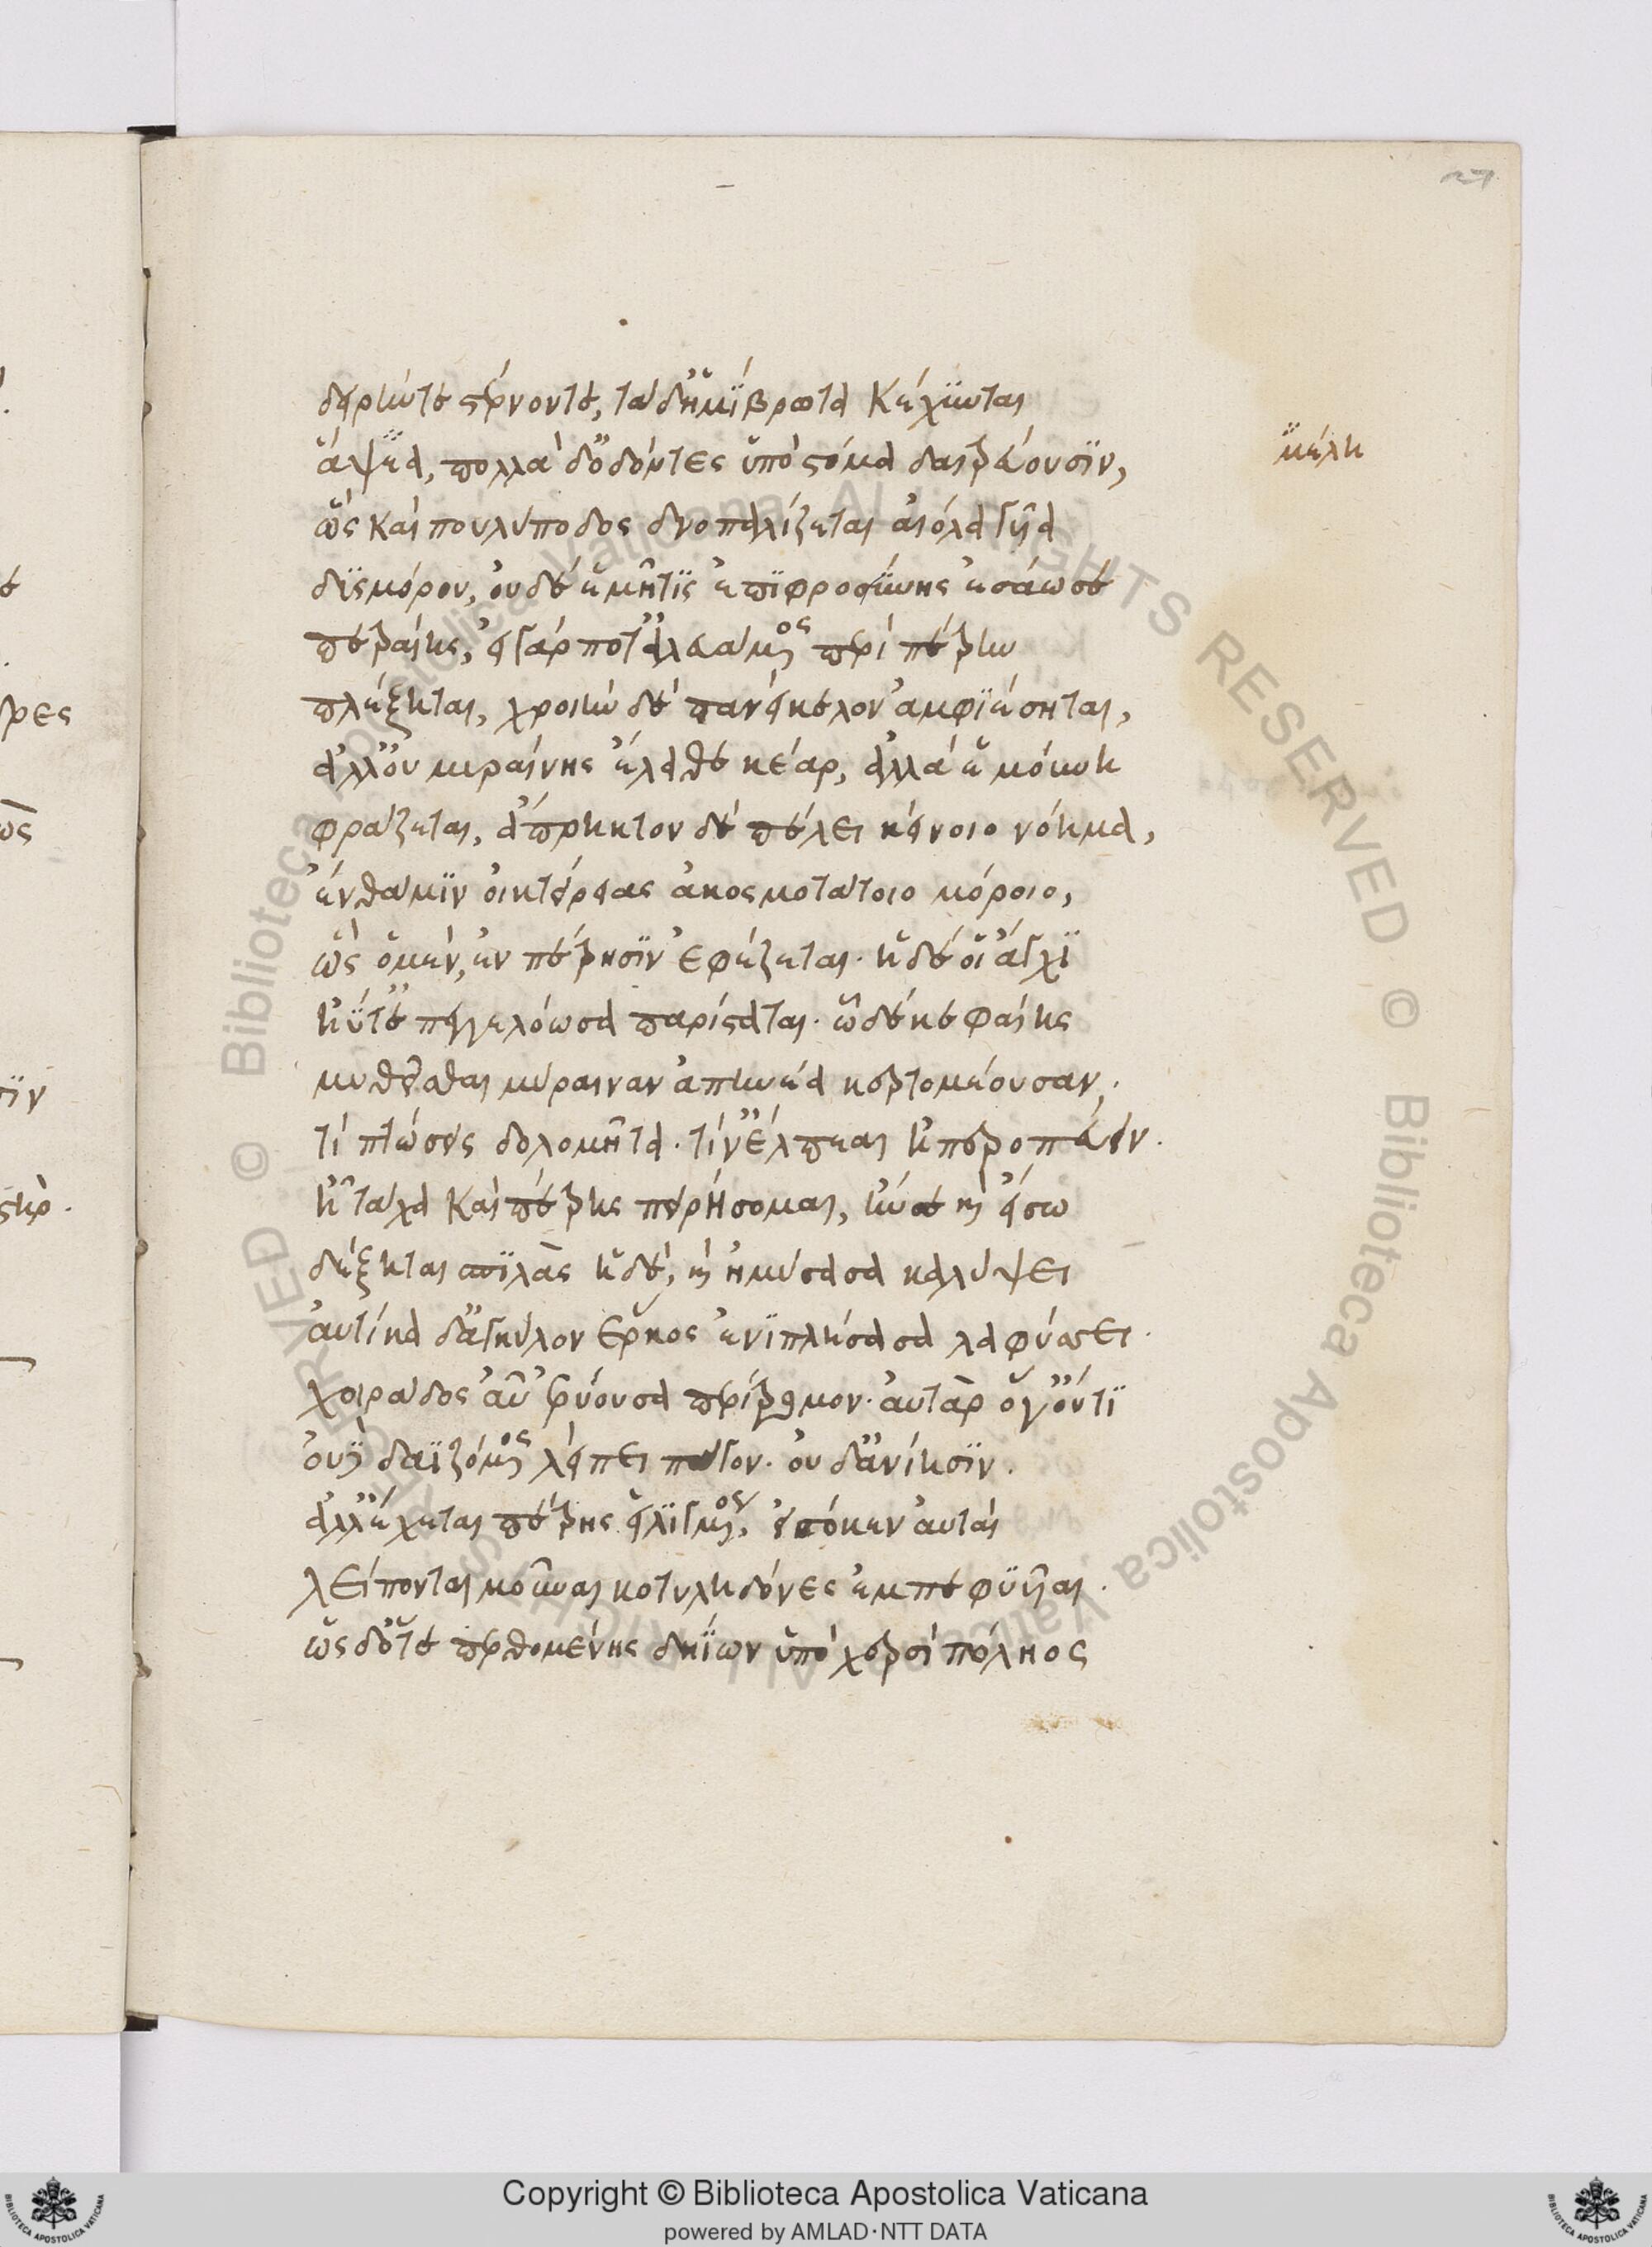 δηριὴν τε στέρνον τε, τὰ δ' ἡμίβρωτα κέχυνται
ἅψεα, πολλὰ δ' ὀδόντες ὑπὸ στόμα δαιτρεύουσιν,
ὣς καὶ πουλύποδος δνοπαλίζεται αἰόλα γυῖα
δυσμόρου, οὐδέ ἑ μῆτις ἐπιφροσύνης ἐσάωσε
πετραίης, εἰ γάρ ποτ' ἀλευάμενος περὶ πέτρην
πλέξηται, χροιὴν δὲ πανείκελον ἀμφιέσηται,
ἀλλ' οὐ μυραίνης ἔλαθε κέαρ, ἀλλά ἑ μούνη
φράζεται, ἄπρηκτον δὲ πέλει κείνοιο νόημα,
ἔνθα μιν οἰκτείρειας ἀκοσμοτάτοιο μόροιο,
ὣς ὁ μὲν, ἐν πέτρησιν ἐφέζεται. ἡ δέ οἱ ἄγχι
ἠΰτ' ἐπεγγελόωσα παρίσταται. ὧδέ κε φαίης
μυθεῖσθαι μύραιναν ἀπηνέα κερτομέουσαν,
τί πτώσεις δολομῆτα. τίν' ἔλπεαι ἠπεροπεύειν.
ἦ τάχα καὶ πέτρης πειρήσομαι, ἤν σε καὶ εἴσω
δέξηται σπιλὰς ἥδε, καὶ ἠμύσασα καλύψει
αὐτίκα δ' ἀγκύλον ἕρκος ἐνιπλήσασα λαφύσσει
χοιράδος αὖ ἐρύουσα περίτρομον. αὐτὰρ ὅγ' οὔτι
οὐδὲ δαϊζόμενος λείπει πάγον. οὐδ' ἀνίησιν.
ἀλλ' ἔχεται πέτρης εἱλιγμένος, εἰσόκεν αὐταὶ
λείπονται μοῦναι κοτυληδόνες ἐμπεφυυῖαι.
ὡς δ' ὅτε περθομένης δηΐων ὑπὸ χερσὶ πόληος
μέλη
27
Copyright © Biblioteca Apostolica Vaticana
powered by AMLAD·NTT DATA